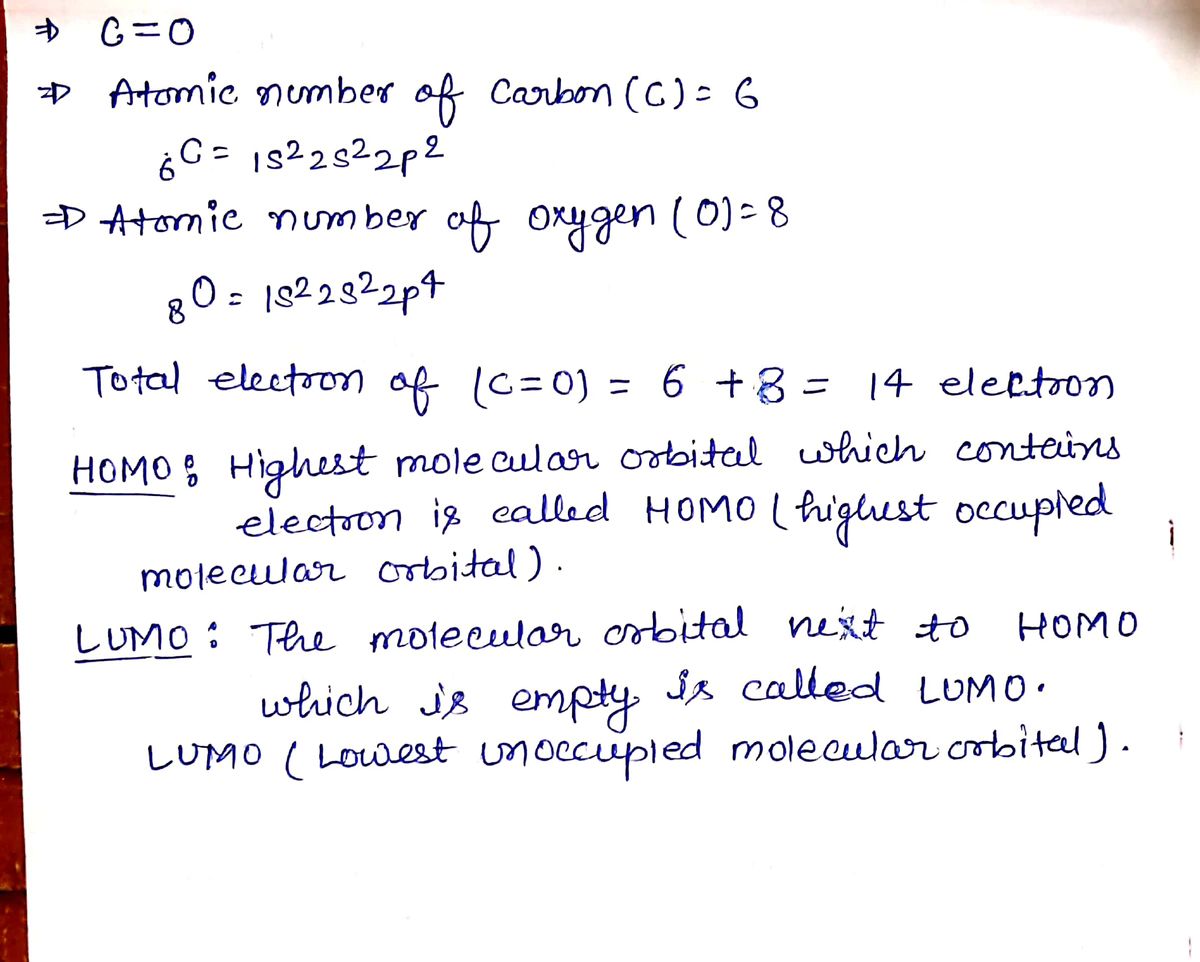 ⇒ C=O
⇒ Atomic number of Carbon (C) = 6
₆C = 1s²2s²2p²
⇒ Atomic number of oxygen (O) = 8
₈O = 1s²2s²2p⁴
Total electron of (C=O) = 6 + 8 = 14 electron
HOMO : Highest molecular orbital which contains
electron is called HOMO ( highest occupied
molecular orbital ) .
LUMO : The molecular orbital next to HOMO
which is empty is called LUMO .
LUMO ( Lowest unoccupied molecular orbital ) .